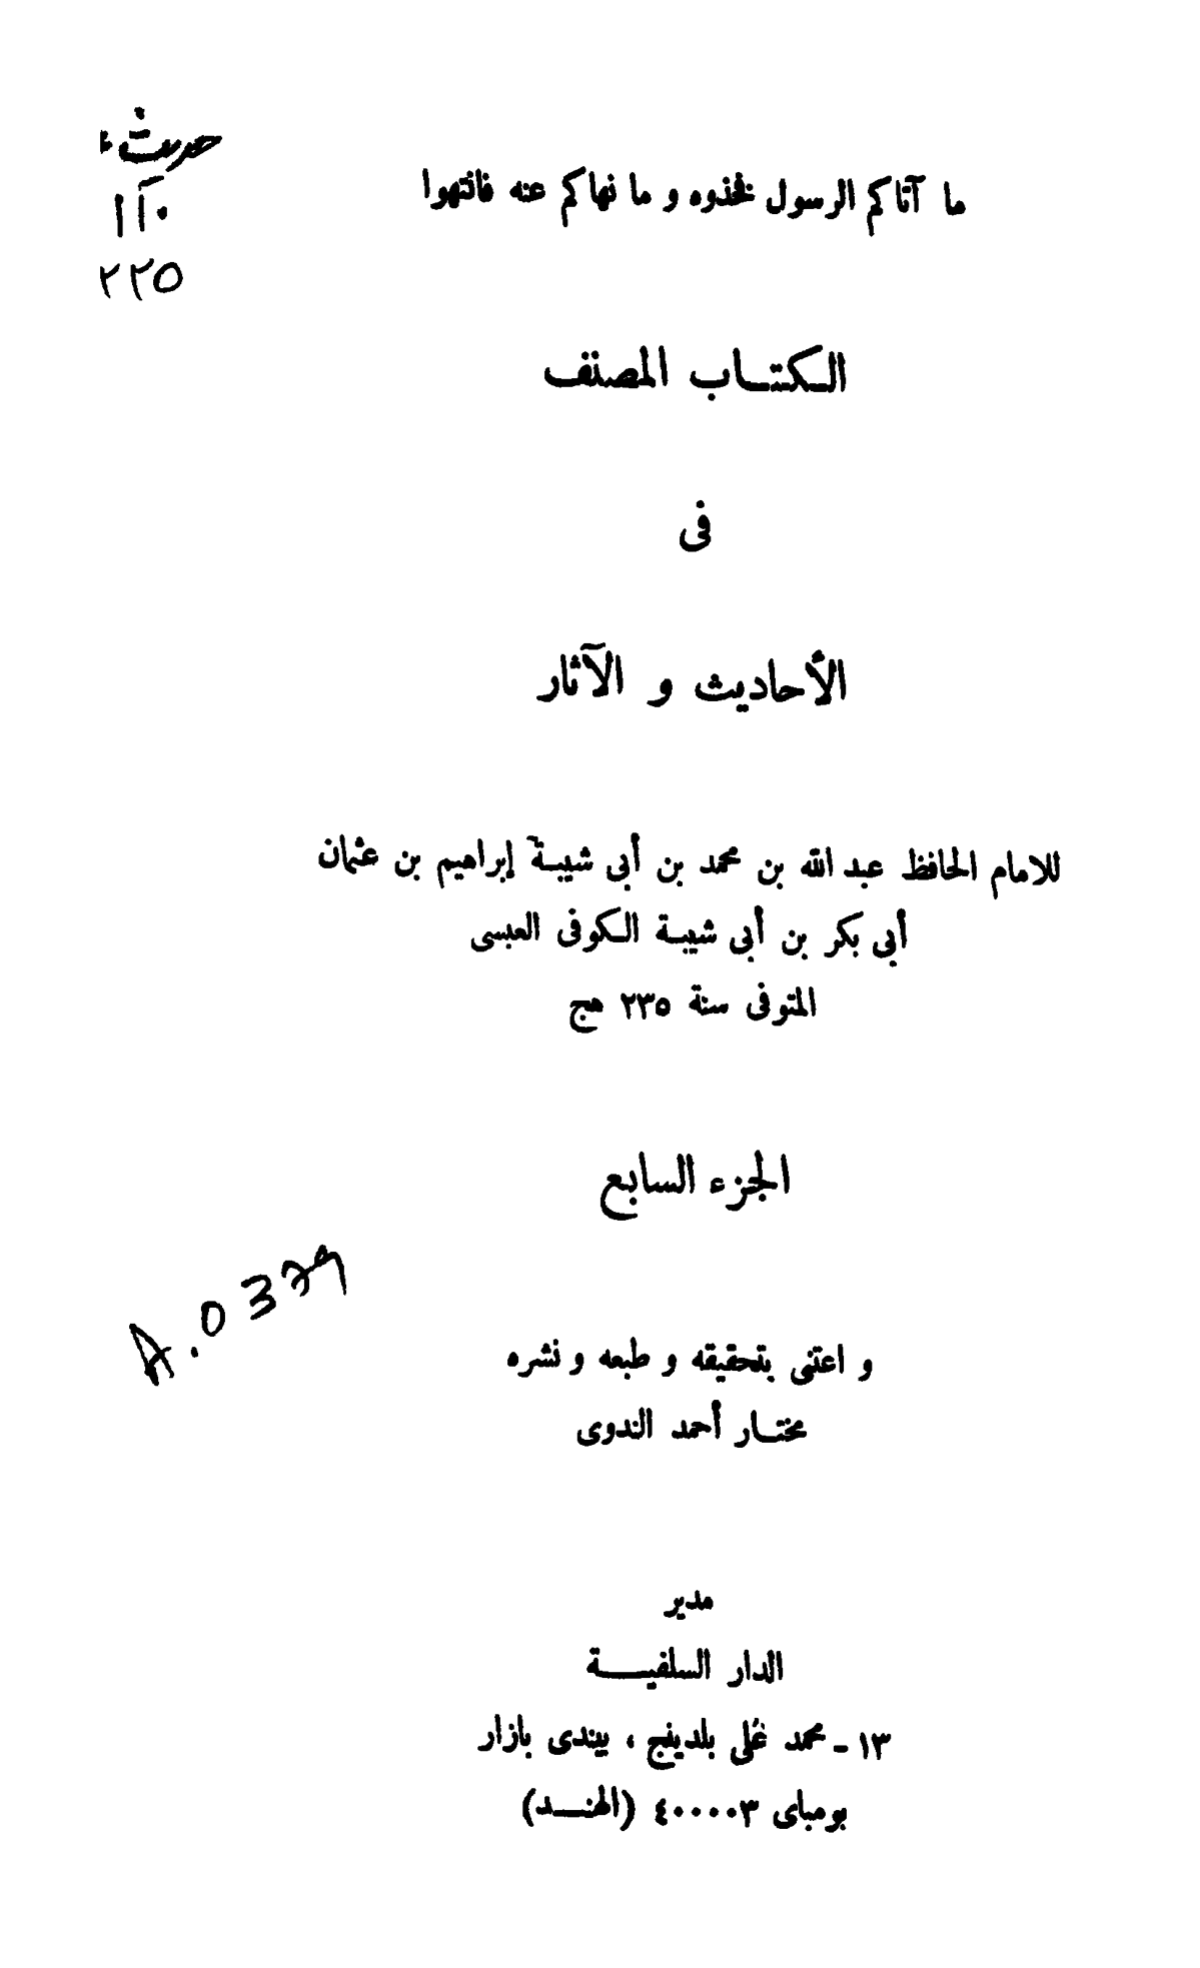 حديث
١١٠
٢٢٥
ما آتاكم الرسول فخذوه و ما نهاكم عنه فانتهوا
الكتاب المصنف
فى
الأحاديث و الآثار
للامام الحافظ عبد الله بن محمد بن أبى شيبة إبراهيم بن عثمان
أبى بكر بن أبى شيبة الكوفى العبسى
المتوفى سنة ٢٣٥ هج
الجزء السابع
و اعتنى بتحقيقه و طبعه و نشره
مختار أحمد الندوى
مدير
الدار السلفية
١٣ - محمد على بلدينج ، بيندى بازار
بومباى ٤٠٠٠٠٣ (الهند)